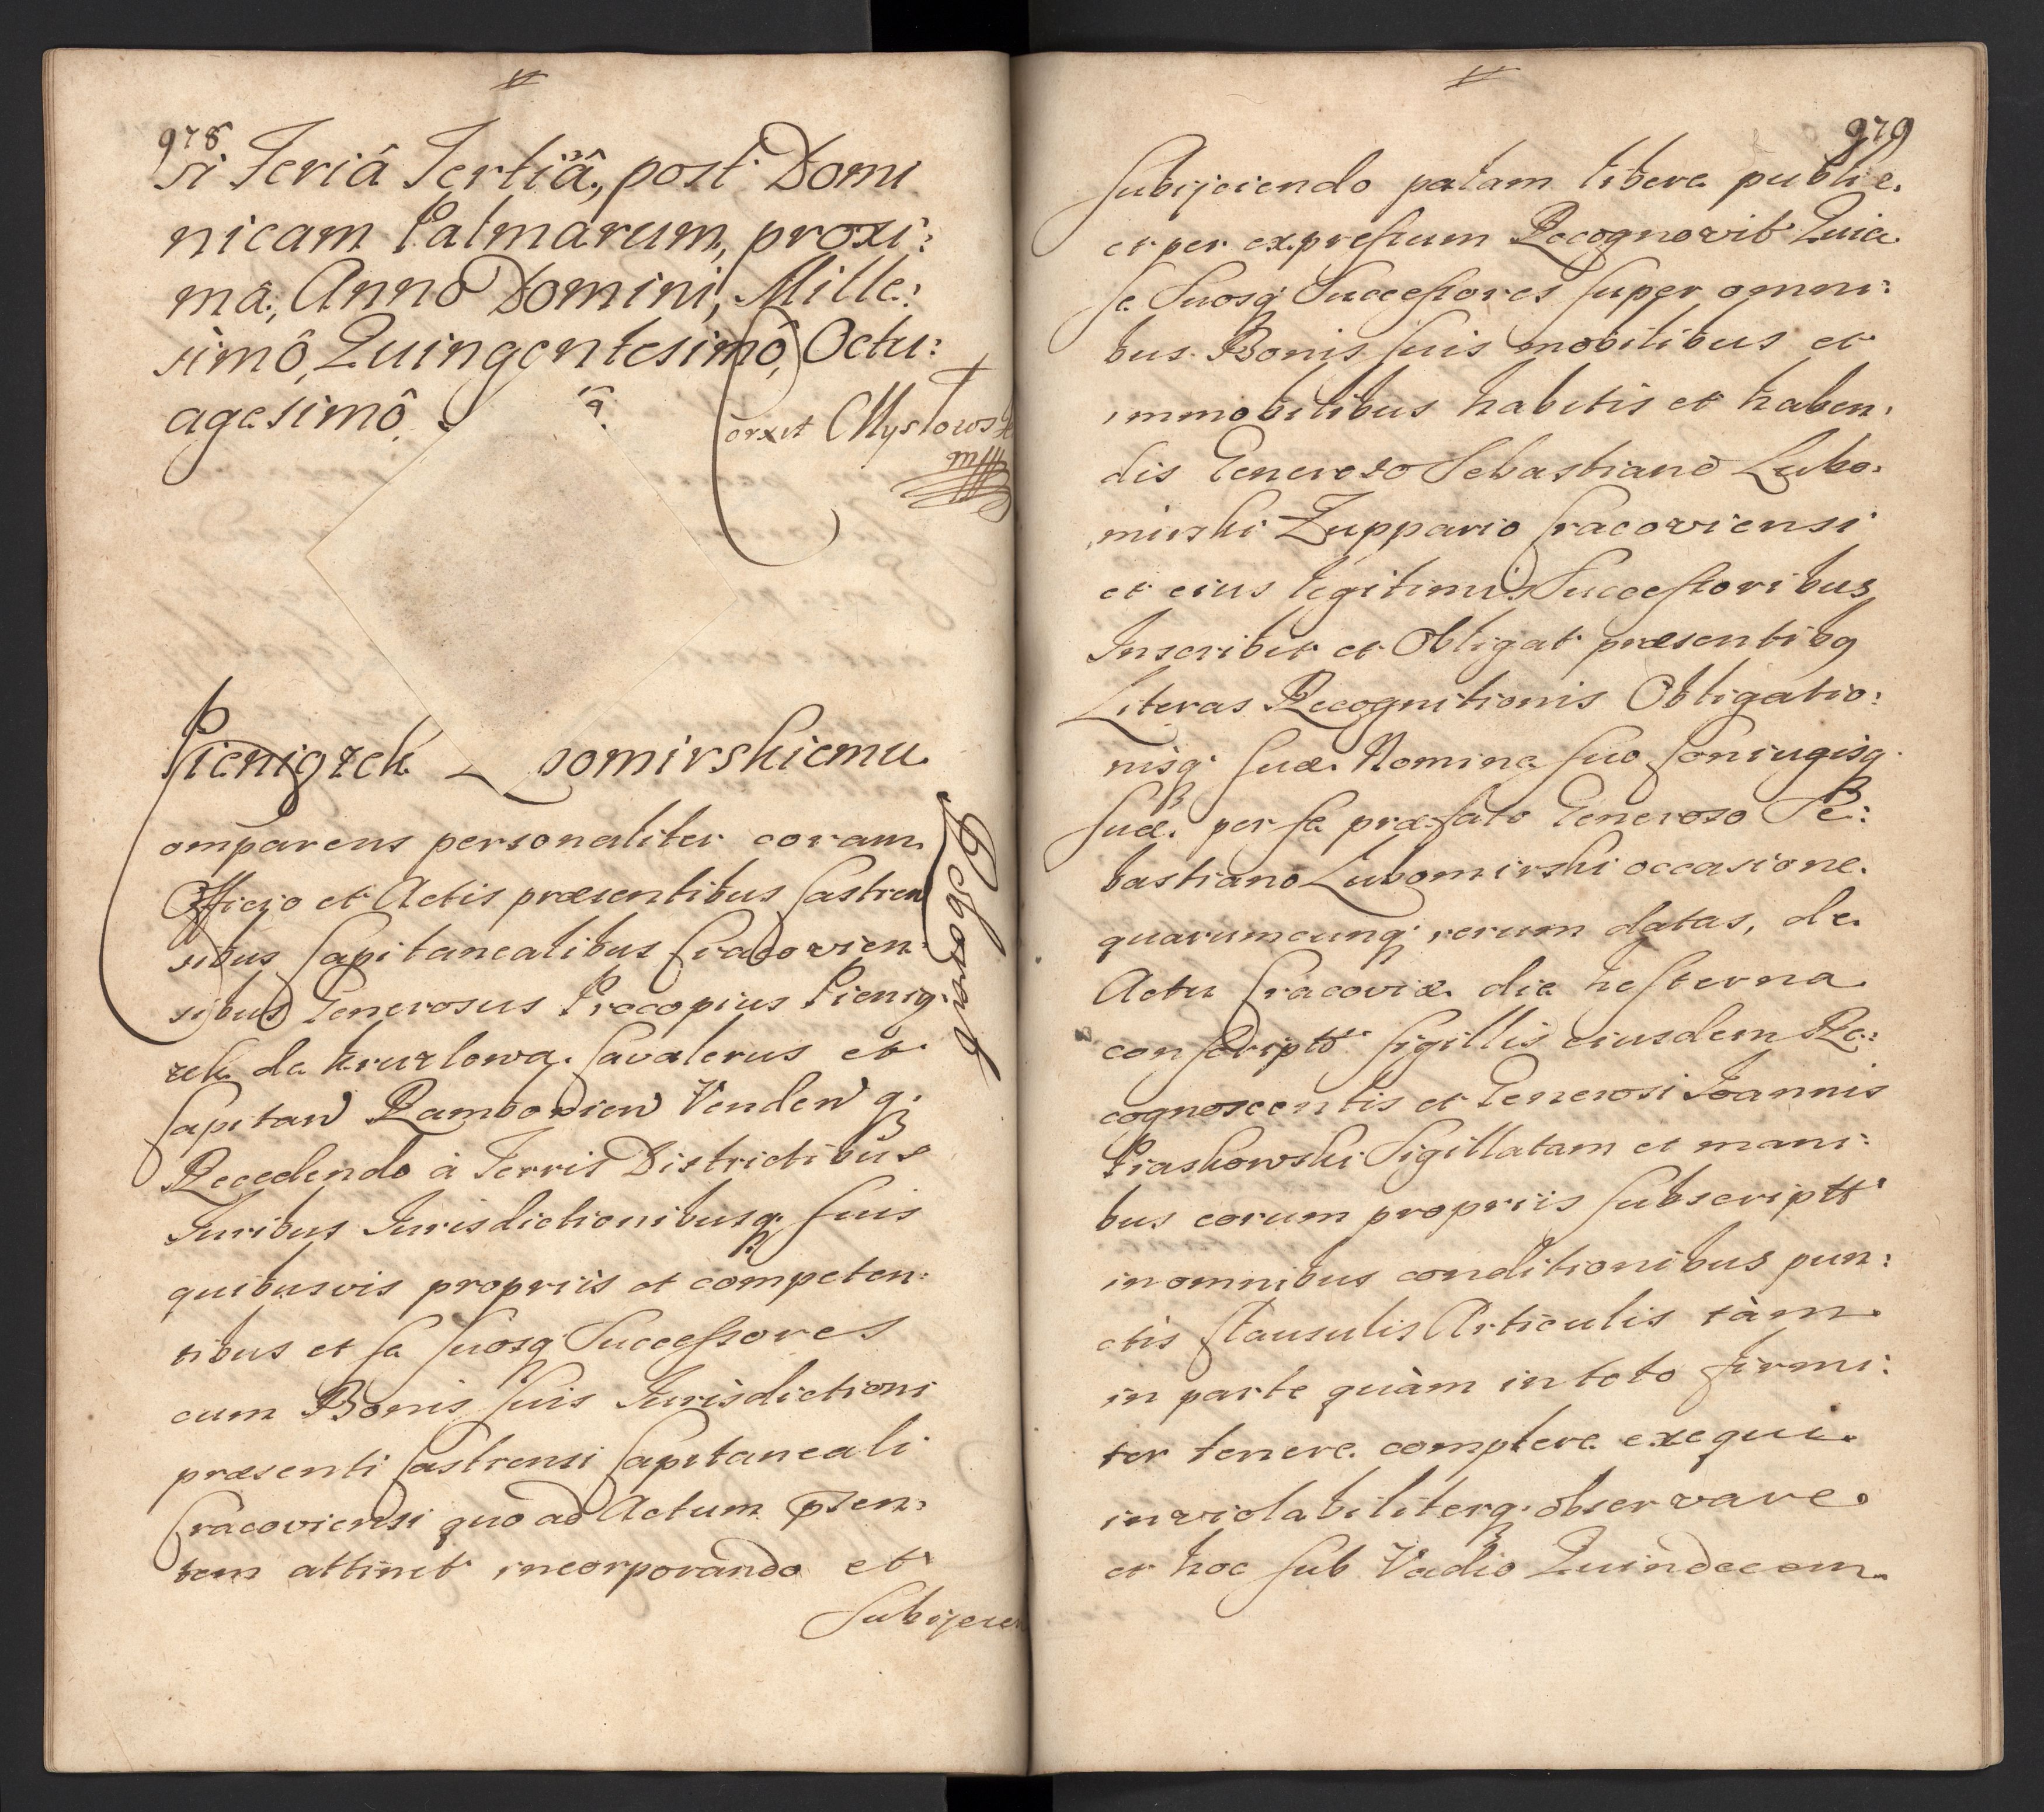 978
si Feriâ Tertiâ, post Domi
nicam Palmarum, proxi:
mâ, Annô Domini, Mille:
simô, Quingentesimô, Octu:
agesimô.
orxit Mysłows
Pieniążek Lubomirskiemu
omparens personaliter coram
Officio et Actis præsentibus Castren
sibus Capitanealibus Cracovien:
sibus Generosus Procopius Pienią:
zek de Kruzlowa. Cavalerus et
Capitan
Recedendo à Terris Districtibus
Iuribus Iurisdictionibusq. suis
quibusvis propriis et competen:
tibus et se suosq Successores
cum Bonis suis Iurisdictioni
præsenti Castrensi Capitaneali
Cracoviensi quo ad Actum pſen:
tem attinet incorporando et
Subijcien
Roborat
979
Subijciendo palam libere publice.
et per expressum Recognovit Quia
se Suosq Successores super omni:
bus Bonis suis mobilibus et
immobilibus habitis et haben:
dis Generoso Sebastiano Lubo:
mirski Zuppario Cracoviensi
et eius legitimis Successoribus
Inscribit et Obligat præsentibq
Literas Recognitionis Obligatio:
nisq. suæ. Nomine suo Coniugisq.
suæ. per se præfato Generoso Se:
bastiano Lubomirski occasione.
quarumcunq. rerum datas, de
Actu Cracoviæ die hesterna
conscriptt sigillis eiusdem Re:
cognoscentis et Generosi Joannis
Piaskowski Sigillatam et mani:
bus eorum propriis subscriptt
in omnibus conditionibus pun:
ctis Clausulis Articulis tàm
in parte quàm in toto firmi:
ter tenere complere exequi
inviolabiliterq. observare.
et hoc sub Vadio Quindecem